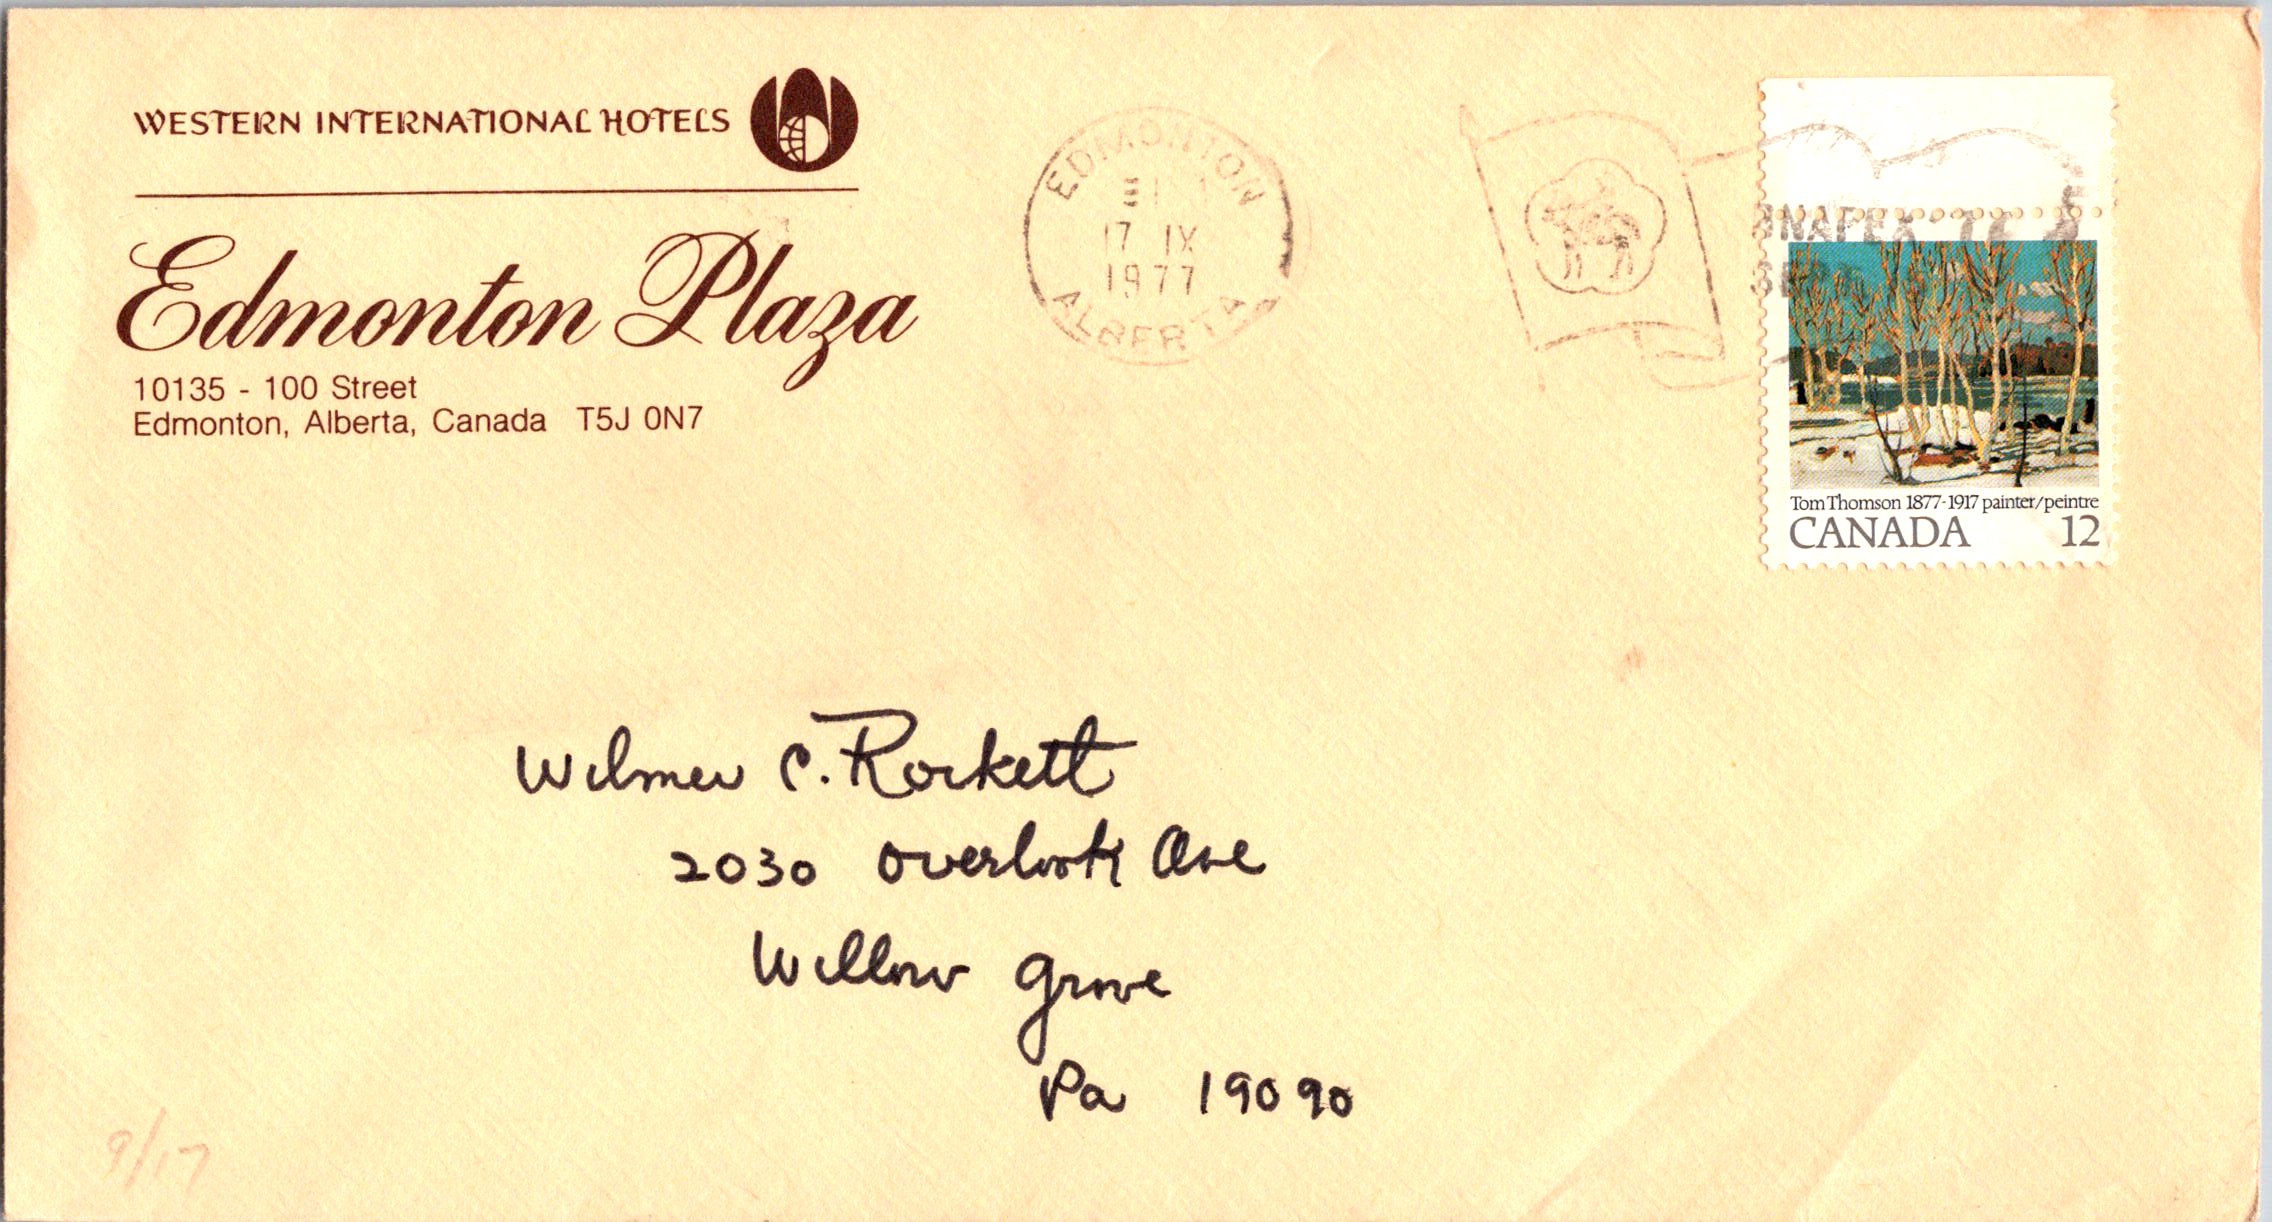 WESTERN INTERNATIONAL HOTELS
Edmonton Plaza
10135 - 100 Street
Edmonton, Alberta, Canada T5J 0N7
EDMONTON
17 IX
1977
ALBERTA
Tom Thomson 1877-1917 painter/peintre
CANADA 12
Wilmer C. Rockett
2030 Overlook Ave
Willow Grove
Pa 19090
9/17